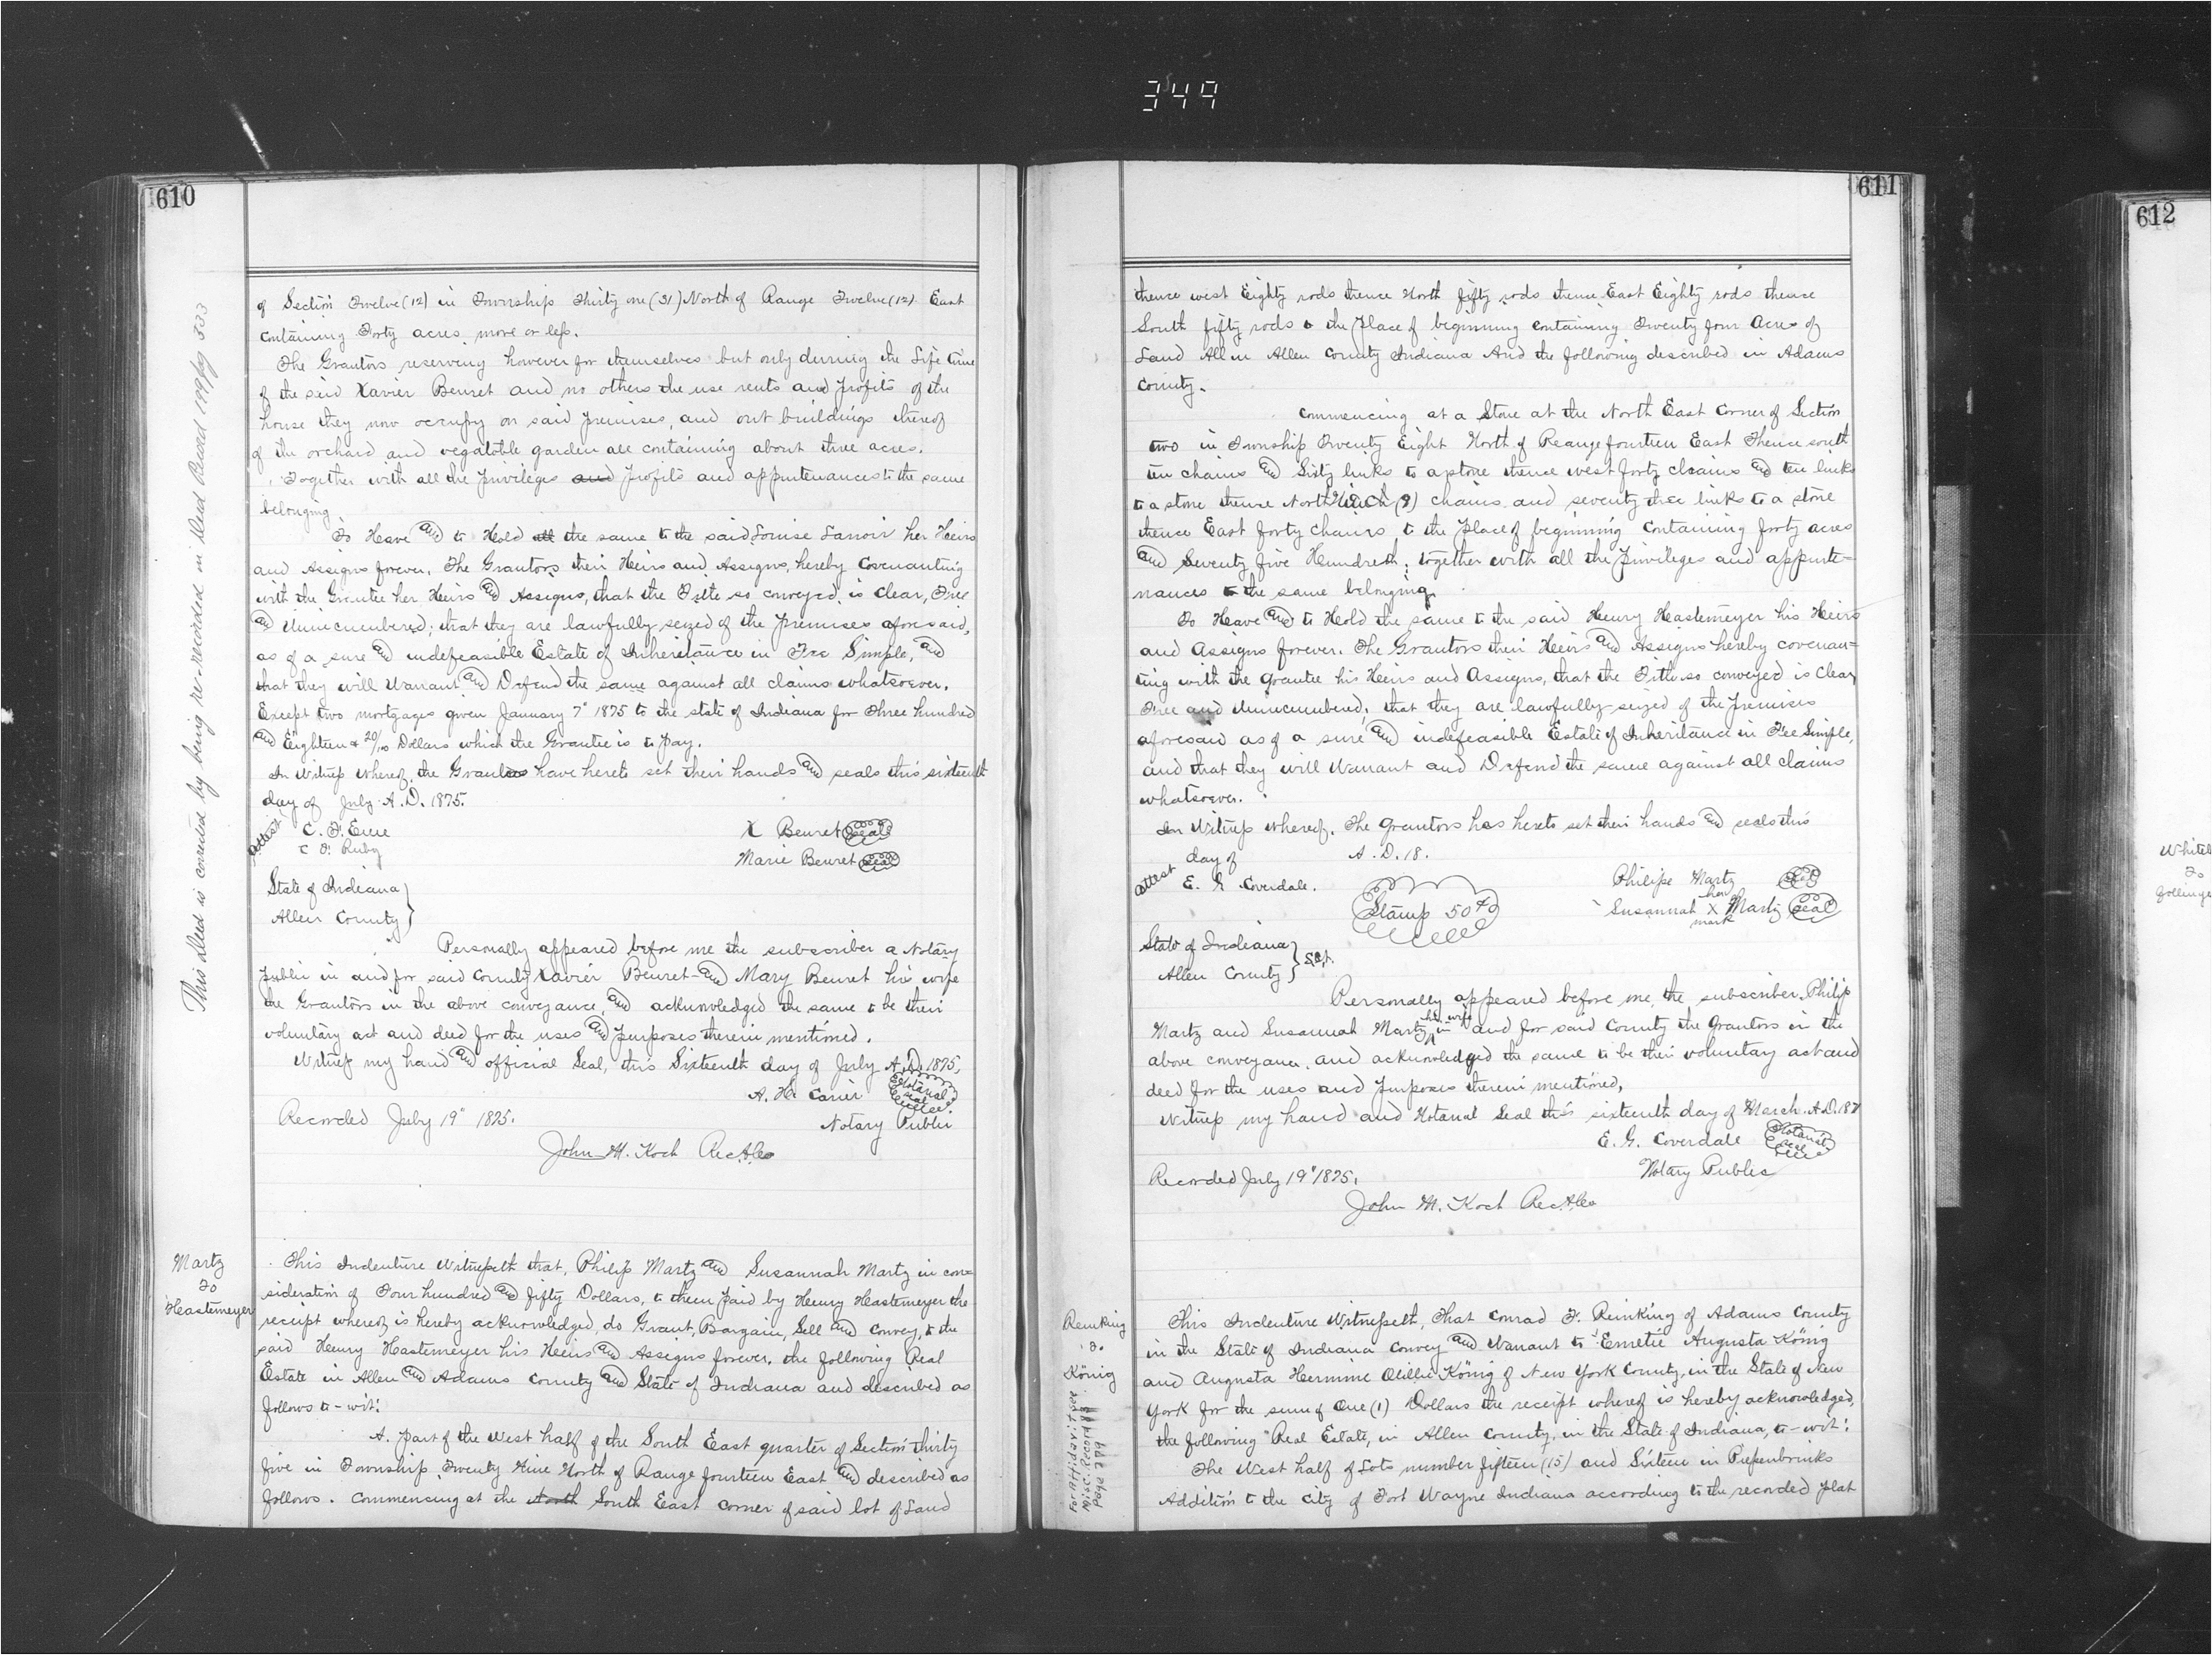 349
610
of Section Twelve (12) in Township Thirty one (31) North of Range Twelve (12) East
containing Forty acres more or less.
The Grantors reserving however for themselves but only durring the Life time
of the said Xavier Beuret and no others the use rents and profits of the
house they now occupy on said premises, and out buildings thereof
of the orchard and vegatoble garden all containing about three acres.
Together with all the Privileges and profits and appurtenances to the same
belonging
To Have and to Hold all the same to the said Louise Lanoir her Heirs
and Assigns forever. The Grantors their Heirs and Assigns, hereby Covenanting
with the Grantee her Heirs and Assigns, that the Title so conveyed, is Clear, Free
and Unincumbered; that they are lawfully seized of the premises aforesaid,
as of a sure and indefeasible Estate of Inheritance in Fee Simple, and
that they will Warrant and Defend the same against all claims whatsoever.
Except two mortgages given January 7" 1875 to the state of Indiana for Three hundred
and Eighteen & 20/100 Dollars which the Grantee is to pay.
In Witness whereof, the Grantors have hereto set their hands and seals this sixteenth
day of July A.D. 1875.
Attest
C. F.
C. F. Ruby
X Beuret Seal
Marie Beuret Seal
State of Indiana
Allen County
Personally appeared before me the subscriber a Notary
Public in and for said County Xavier Beuret and Mary Beuret his wife
the Grantors in the above conveyance, and acknowledged the same to be their
voluntary act and deed for the uses and purposes therein mentioned.
Witness my hand and official Seal, this Sixteenth day of July A.D. 1875.
A. H. Carier Notarial Seal
Notary Public
Recorded July 19" 1875.
John M. Koch RecAlco
This Deed is corrected by being re-recorded in Deed Record 199 pg 333
Martz
To
Hastemeyer
This Indenture Witnesseth that, Philip Martz and Susannah Martz in con=
sideration of Four hundred and fifty Dollars, to them paid by Henry Hastemeyer the
receipt whereof is hereby acknowledged, do Grant, Bargain, Sell and Convey, to the
said Henry Hastemeyer his Heirs and Assigns forever, the following Real
Estate in Allen and Adams County and State of Indiana and described as
follows to-wit:
A. part of the West half of the South East quarter of Section thirty
five in Township Twenty Nine North of Range fourteen East and described as
follows. Commencing at the North South East corner of said lot of Land
611
thence west Eighty rods thence North fifty rods thence East Eighty rods thence
South fifty rods to the place of beginning containing Twenty four Acres of
Land All in Allen County Indiana And the following described in Adams
County.
Commencing at a Stone at the North East Corner of Section
two in Township Twenty Eight North of Reange fourteen East Thence south
ten chains and Sixty links to a stone thence west forty chains and ten links
to a stone thence North (9) chains and seventy three links to a stone
thence East forty chains, to the place of beginning Containing forty acres
and Seventy five Hundreth; together with all the privileges and appurte=
nances to the same belonging.
To Have and to Hold the same to the said Henry Hastemeyer his Heirs
and Assigns forever. The Grantors their Heirs and Assigns hereby covenan=
ting with the grantee his Heirs and Assigns, that the Title so conveyed is Clear,
Free and Unincumbered; that they are lawfully seized of the premises
aforesaid as of a sure and indefeasible Estate of Inheritance in Fee Simple,
and that they will Warrant and Defend the same against all claims
whatsoever.
In Witness whereof, The grantors has hereto set their hands and seals this
day of A.D. 18.
Attest
E. G. Coverdale.
Stamp 50cts
Philipe Martz Seal
her
Susannah X Martz Seal
mark
State of Indiana
Allen County } Sct.
Personally appeared before me, the subscriber, Philip
Martz and Susannah Martz his wife in and for said County the Grantors in the
above conveyance, and acknowledged the same to be their voluntary act and
deed for the uses and purposes therein mentioned,
Witness my hand and Notarial Seal this sixteenth day of March A.D. 187
E. G. Coverdale Notarial Seal
Notary Public
Recorded July 19" 1875.
John M. Koch RecAlco
Reinking
To
König
For Affidavit see
Misc. Record
Page
This Indenture Witnesseth, That Conrad F. Reinking of Adams County
in the State of Indiana Convey and Warrant to Emetie Augusta König
and Augusta Hermine Ottillie König of New York County, in the State of New
York for the sum of One (1) Dollars the receipt whereof is hereby acknowledged,
the following Real Estate, in Allen County, in the State of Indiana, to-wit:
The West half of Lots number fifteen (15) and Sixteen in Piepenbrinks
Addition to the City of Fort Wayne Indiana according to the recorded plat
612